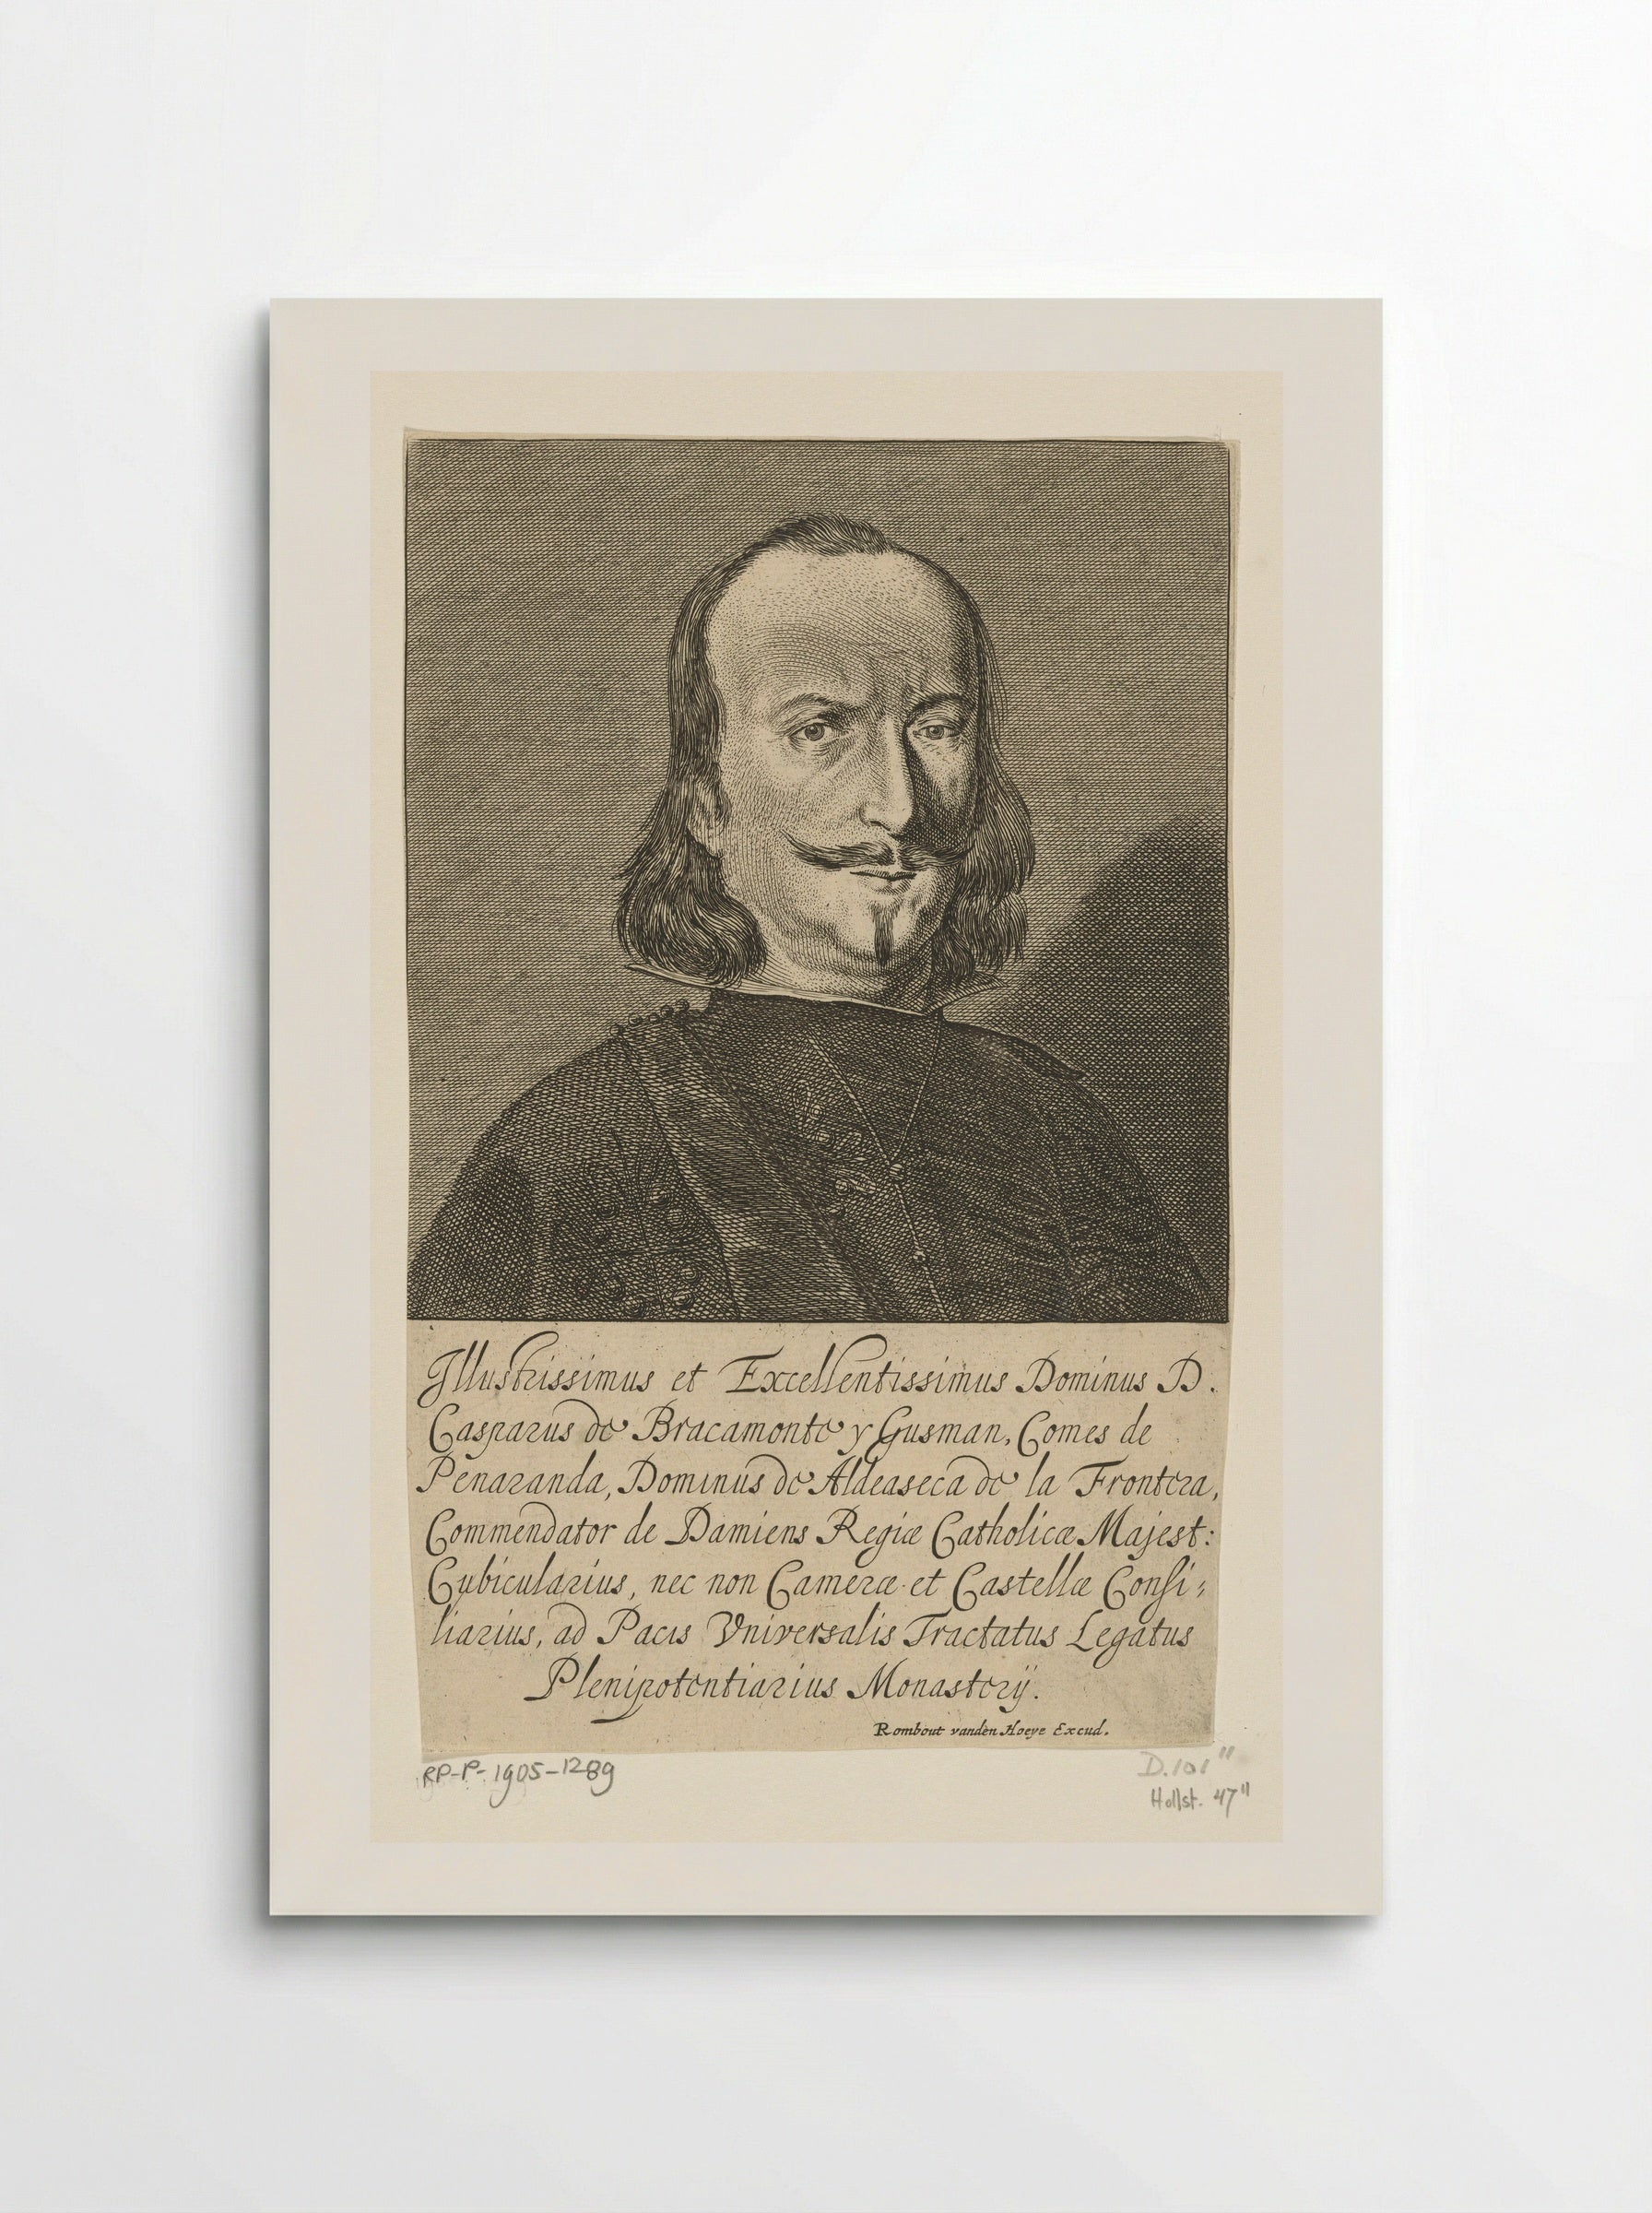 Illustrissimus et Excellentissimus Dominus D.
Casparus de Bracamonte y Gusman, Comes de
Penaranda, Dominus de Aldeaseca de la Frontera,
Commendator de Damiens Regiæ Catholicæ Majest:
Cubicularius, nec non Cameræ et Castellæ Consi-
liarius, ad Pacis Vniversalis Tractatus Legatus
Plenipotentiarius Monasterÿ.
Rombout vanden Hoeye Excud.
RP-P-1905-1289
D.101"
Hollst. 47"